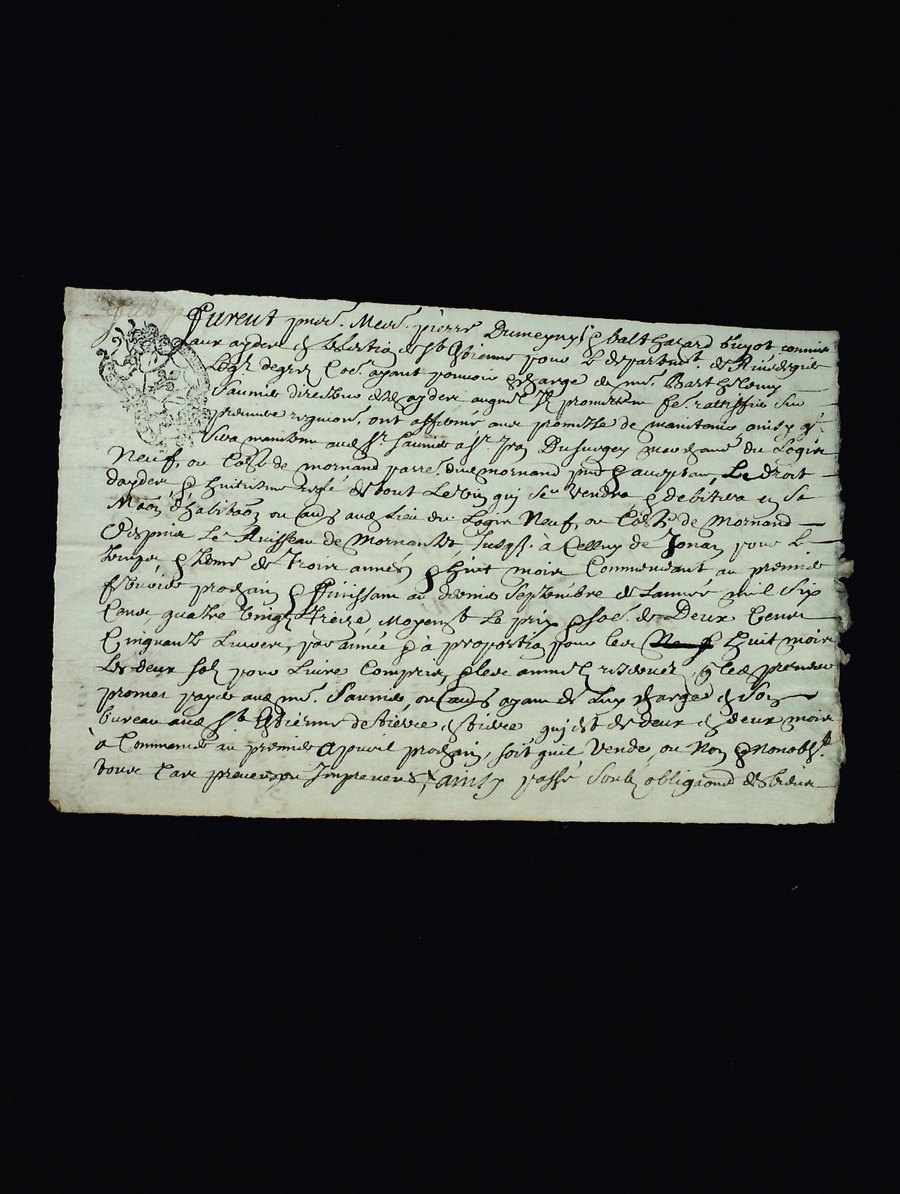 furent pntz. Mers. pierre Dumeynys & balthazard buyot commis
aux aydes Election de St Estienne pour le departemt. de Rivedegier
ayant pouvoir & charge de mre. Barthelemy
Saunier directeur desd aydes auquel Ilz promettent fe. rattiffier Sur
premiere requion. ont affermé aux promesse de maintenir ainsy q.
sera maintenu aud Sr. Saunier a Sr. Jean Dusurgey marchant du Logis
Neuf, ou de mornand parroisse dud mornand pnt & acceptant, Le droit
daydes & huitiesme reglé de tout Le vin quil Se vendra & debitera en Sa
Maon. d'habitaon ou aud Lieu du Logis Neuf, ou de Mornand
Despuis Le Ruisseau de Mornantet Jusqs. à Celluy de Jonan pour le
temps & terme de trois années & huit mois Commencant au premier
febvrier prochain & finissant au dernier Septembre de Lannée mil Six
Cents quatre vingt treize Moyent Le prix & soe. de Deux Cents
Cinquante Livres, par année & à proportion pour les huit mois
Les deux solz pour Livre Compris, &
promet payer aud mre. Saunier, ou ayant de Luy charge en Son
bureau aud St Estienne de tiers en tiers quj est de deux en deux mois
à Commencer au premier Apvril prochain, soit quil vende, ou Non & Nonobst.
tous Cas preveus ou Impreveus, ainsy passé Soubz obligaons de biens